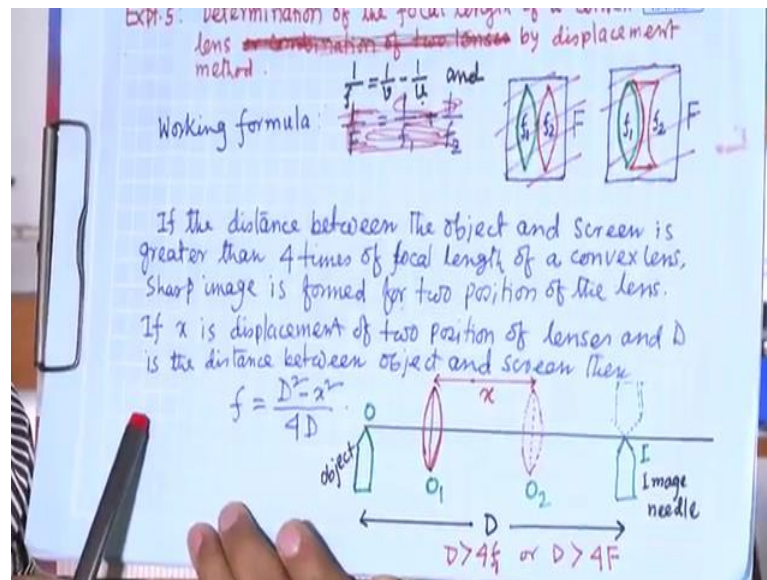 Expt.5: Determination of the focal length of a convex
lens or combination of two lenses by displacement
method.
1/f = 1/v - 1/u and
Working formula: 1/F = 1/f₁ + 1/f₂
f₁ f₂ F
f₁ f₂ F
If the distance between the object and screen is
greater than 4 times of focal length of a convex lens,
Sharp image is formed for two position of the lens.
If x is displacement of two position of lenses and D
is the distance between object and screen then
f = D²-x² / 4D .
x
O
object
O₁ O₂
I
Image
needle
D
D>4f or D>4F